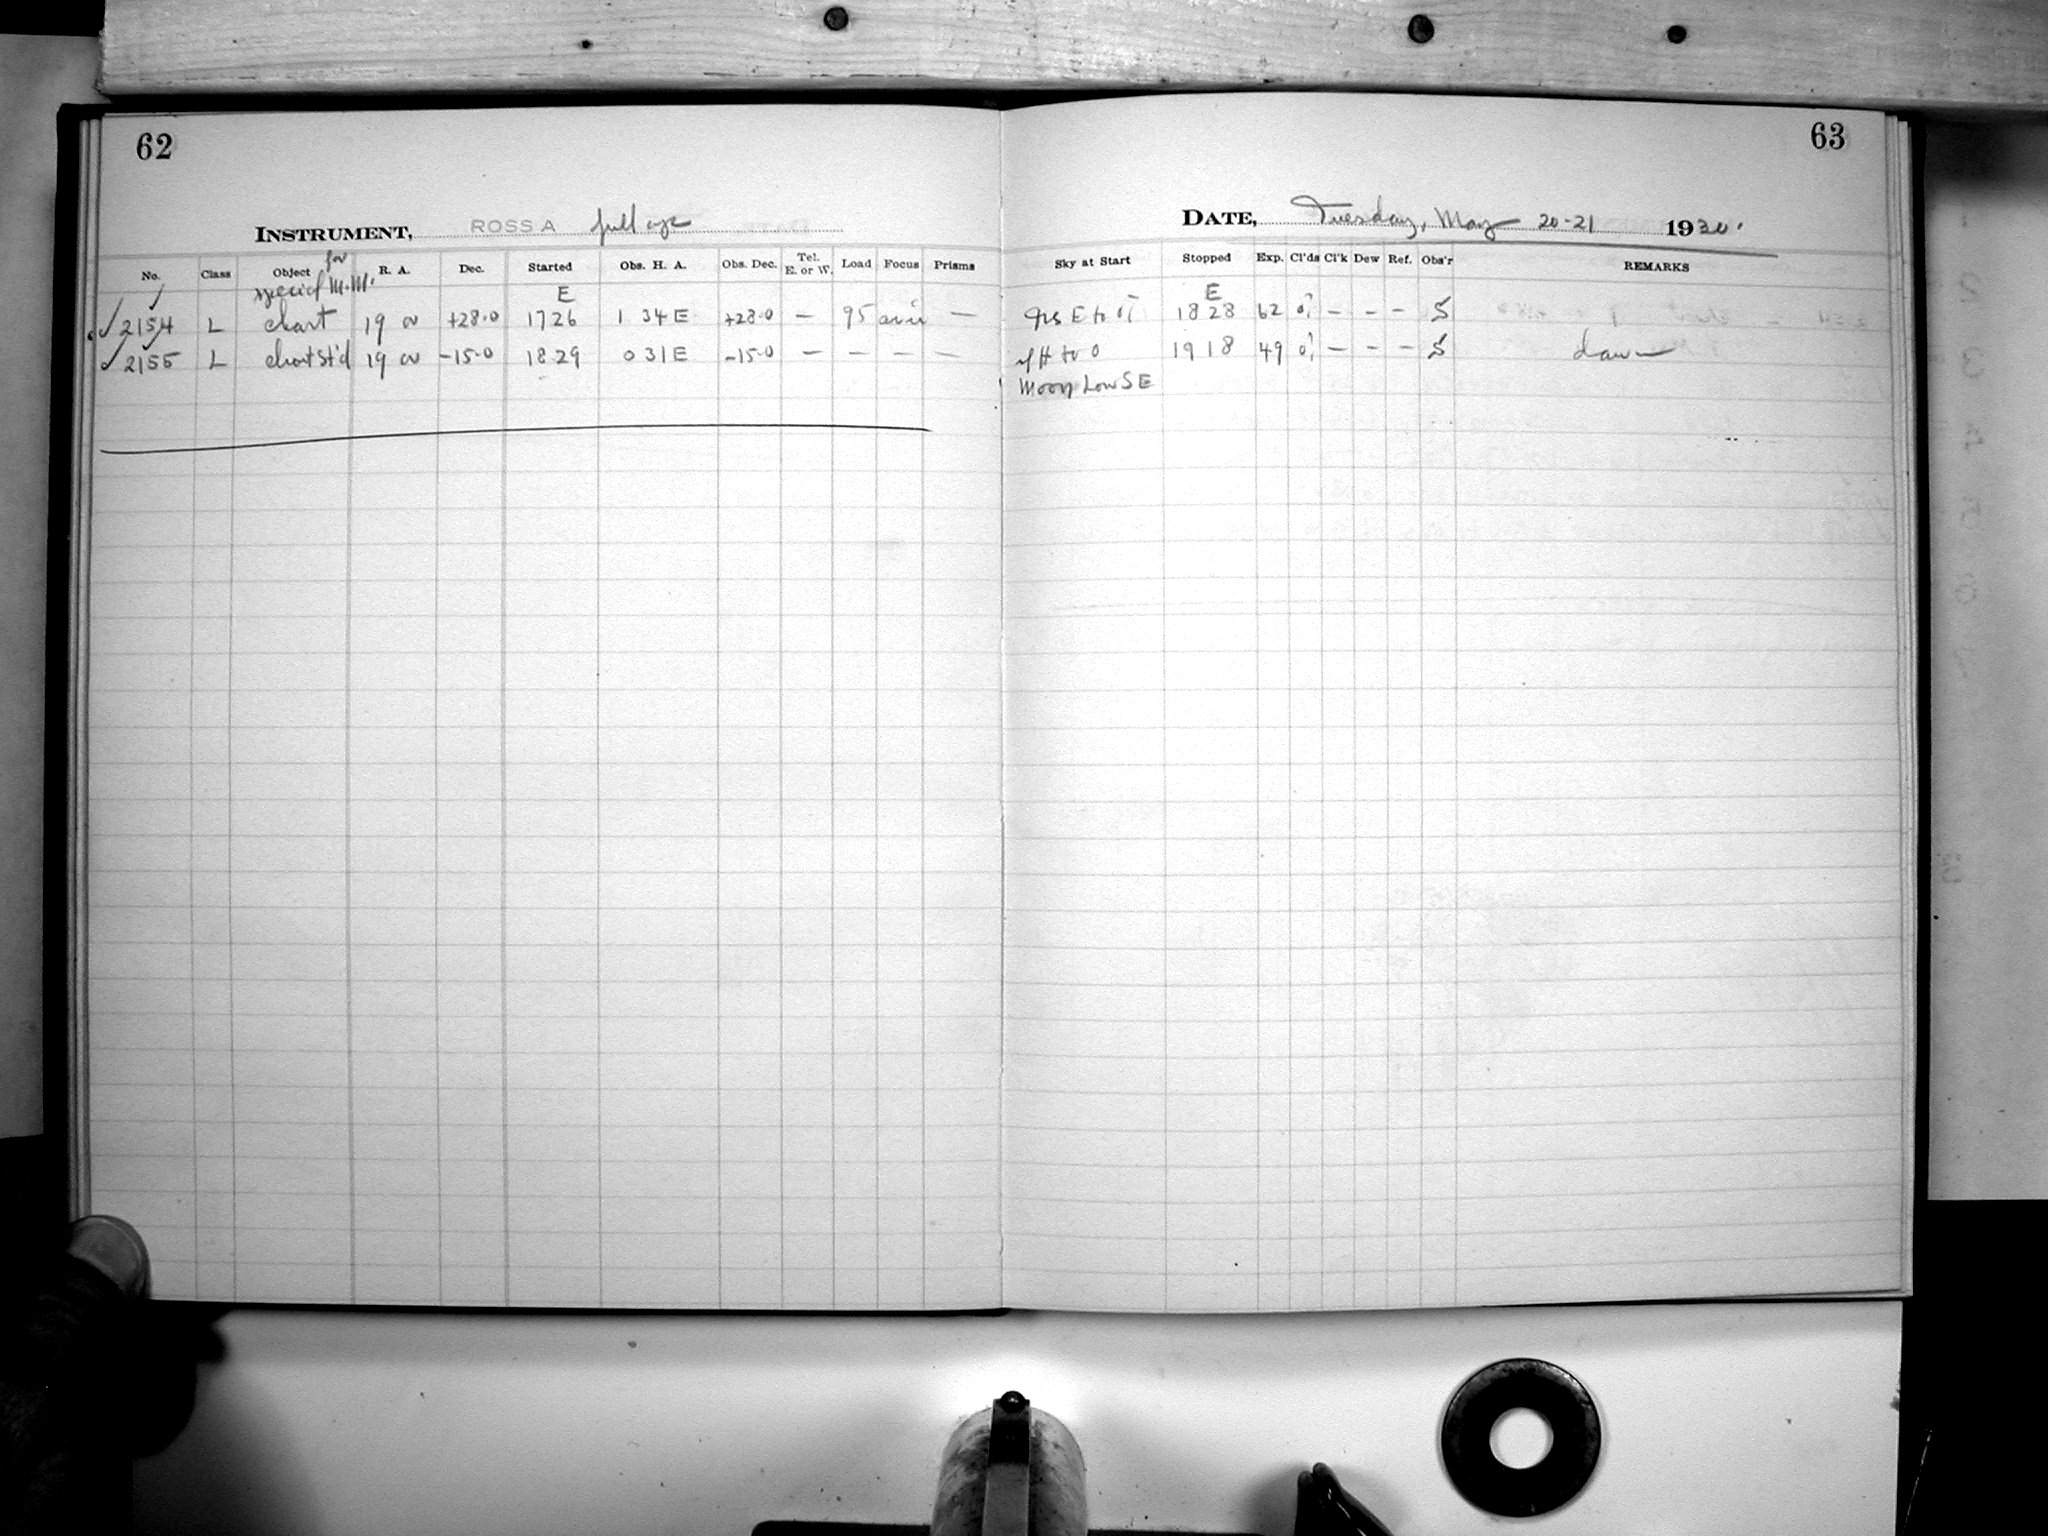 62
INSTRUMENT, ROSS A full
No. Class Object R. A. Dec. Started Obs. H. A. Obs. Dec. Tel. E. or W. Load Focus Prisms
for
special M.M. E
2154 L chart 19 00 +28.0 17 26 1 34 E +28.0 — 95 —
2155 L chart St'd 19 00 -15.0 18 29 0 31 E -15.0 — — — —
63
DATE, Tuesday, May 20-21 1930.
Sky at Start Stopped Exp. Cl'ds Cl'k Dew Ref. Obs'r REMARKS
E
E to 18 28 62 0? — — — S
to 0 19 18 49 0? — — — S dawn
Moon Low S E